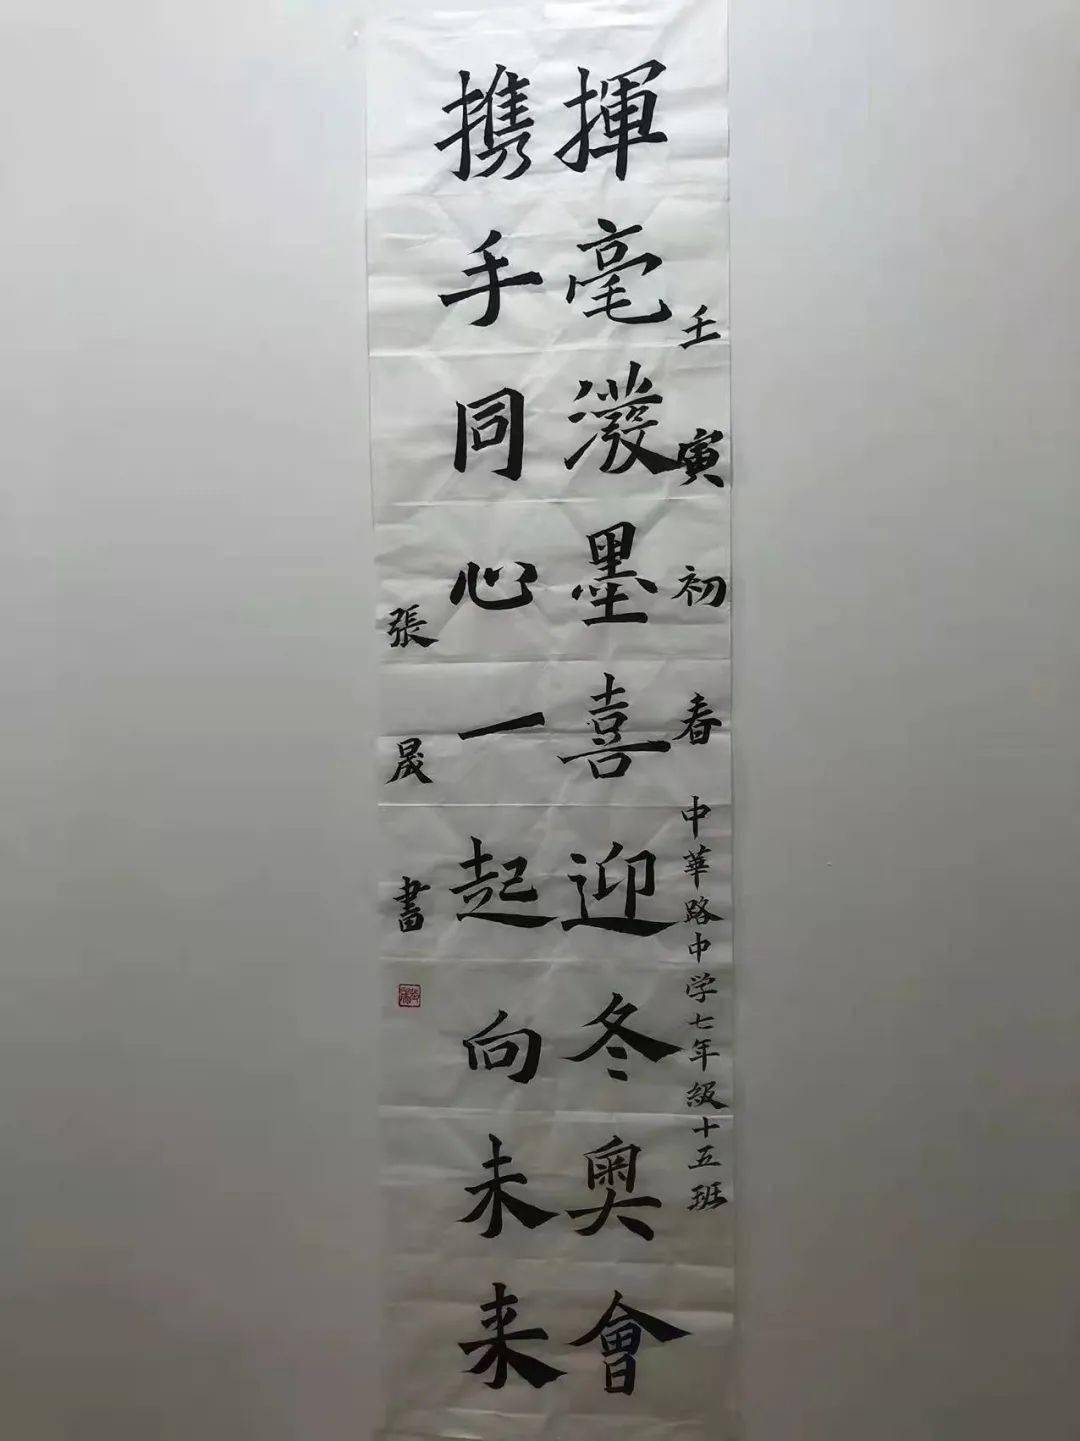 壬寅初春 中華路中学七年級十五班
揮毫潑墨喜迎冬奧會
携手同心一起向未来
張晟書